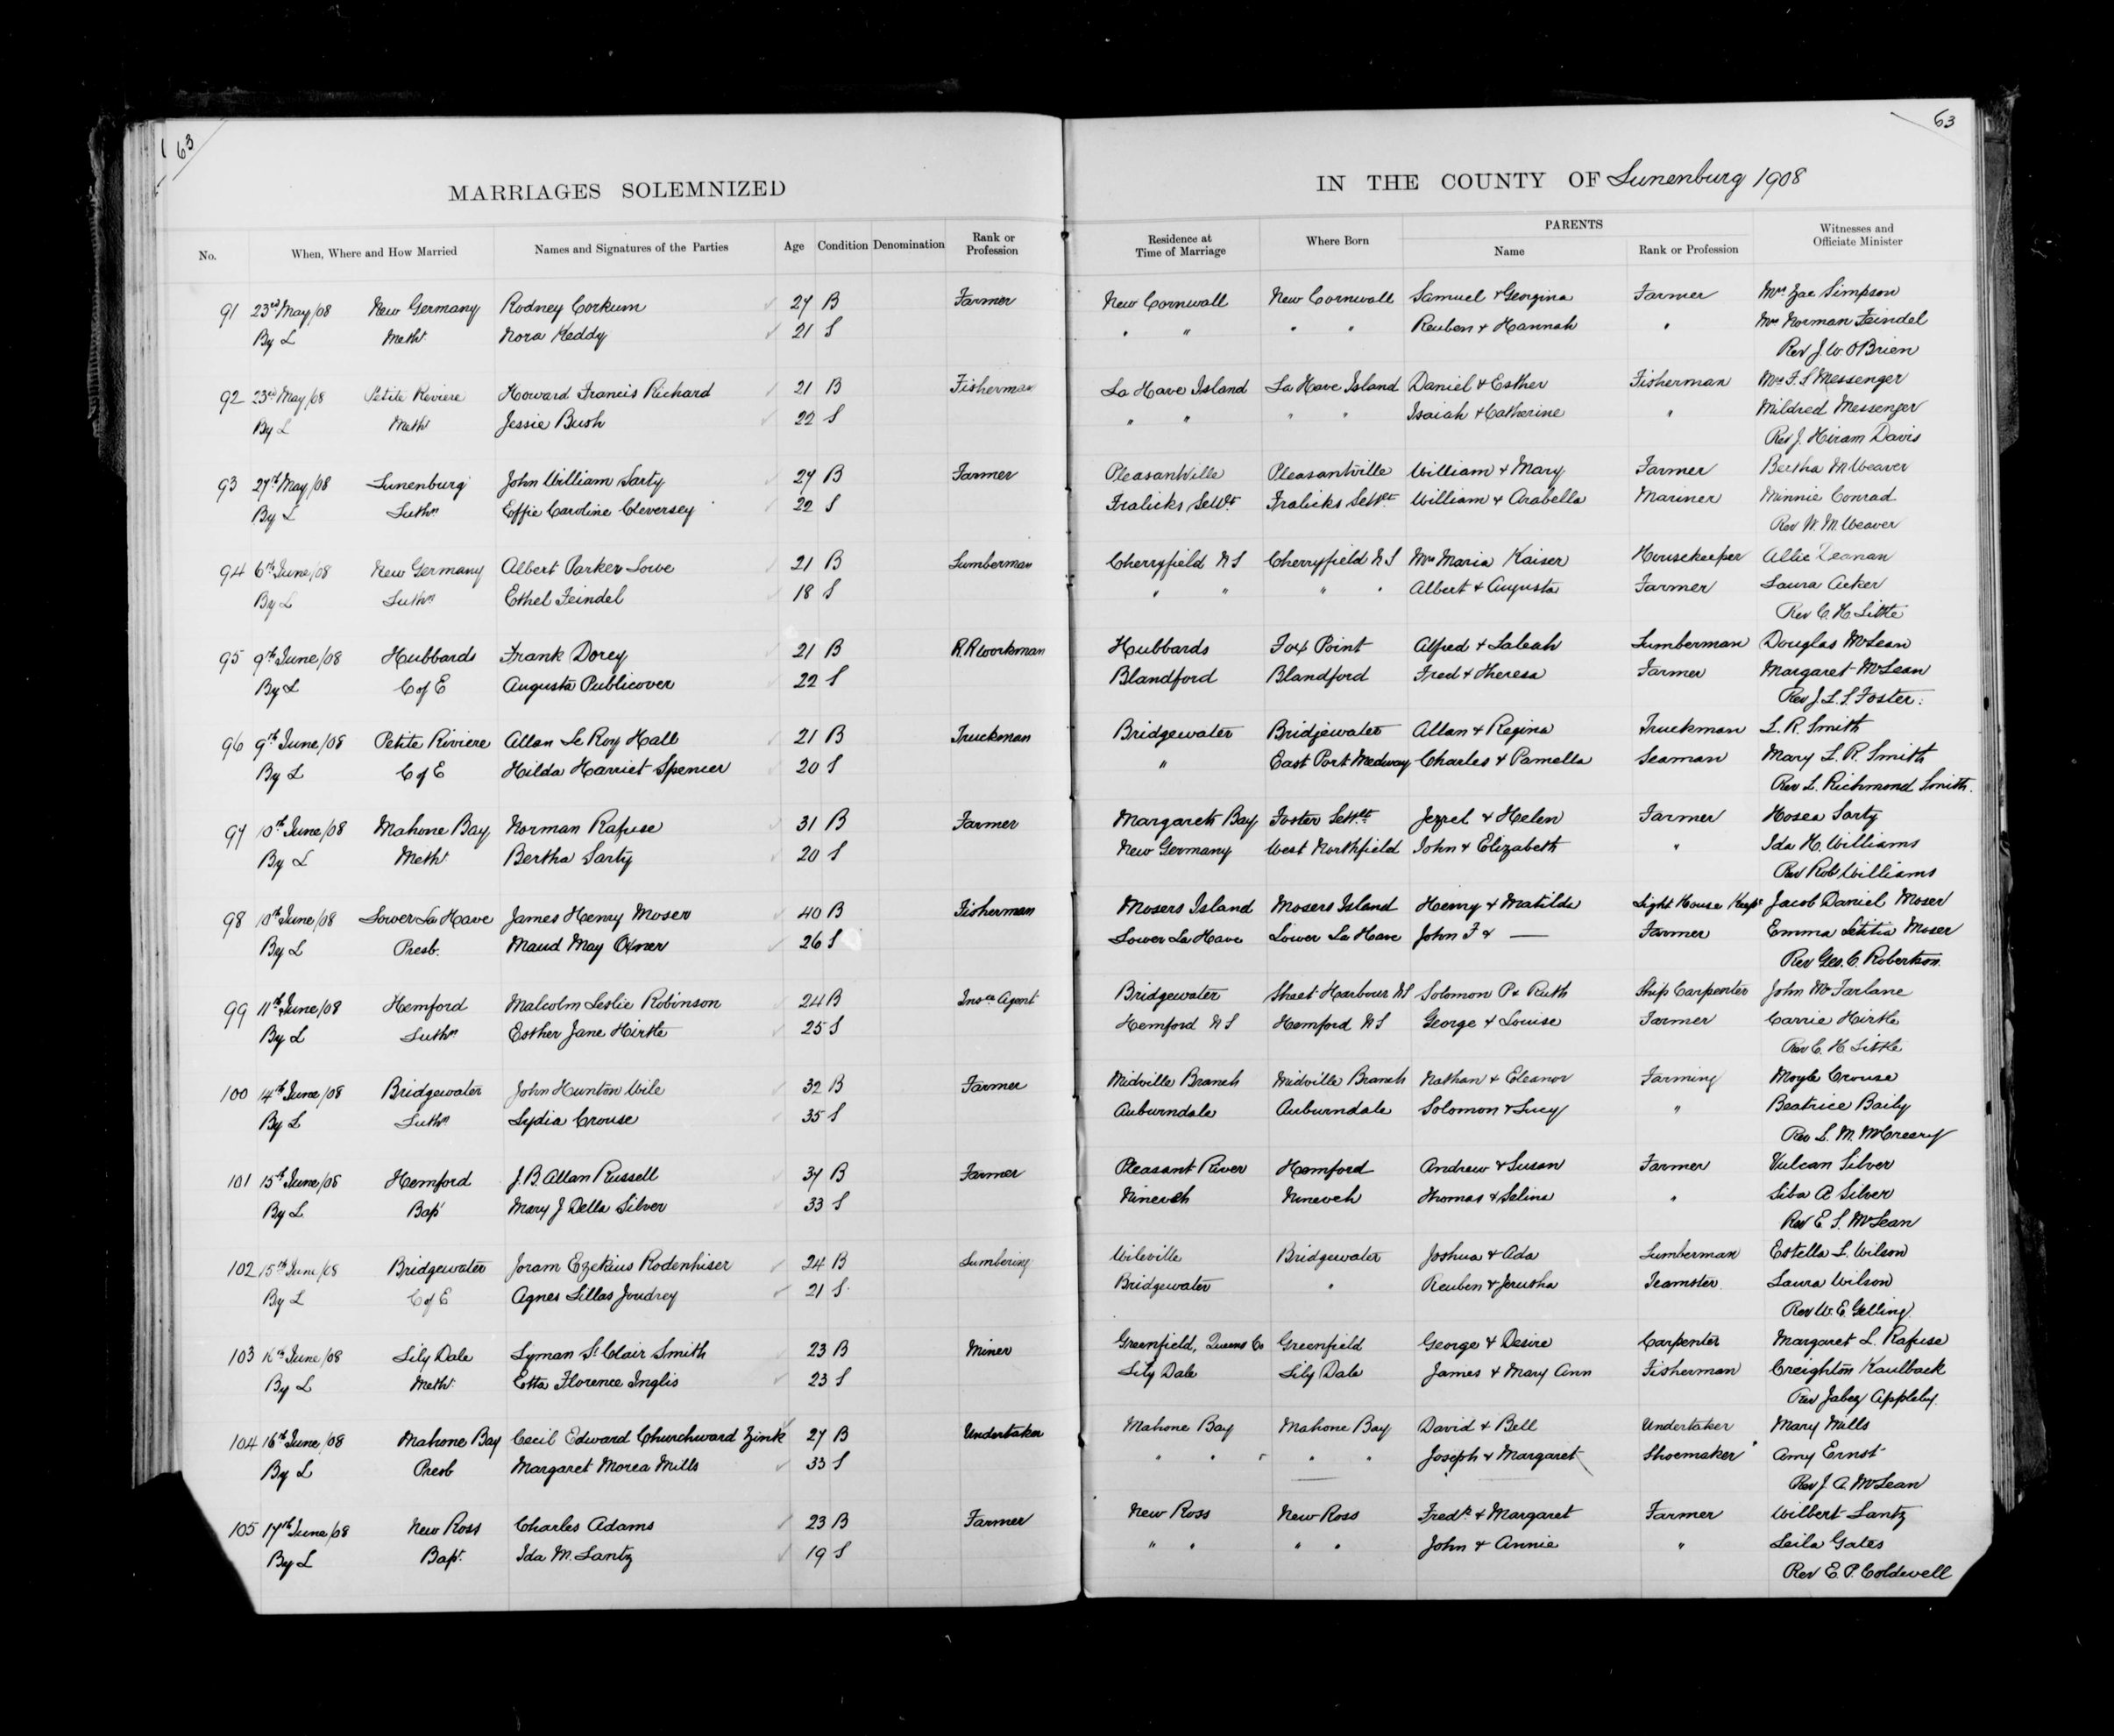 63
63
MARRIAGES SOLEMNIZED IN THE COUNTY OF Lunenburg 1908
No. When, Where and How Married Names and Signatures of the Parties Age Condition Denomination Rank or Profession Residence at Time of Marriage Where Born PARENTS Name Rank or Profession Witnesses and Officiate Minister
91 23rd May/08 New Germany Rodney Corkum 27 B Farmer New Cornwall New Cornwall Samuel & Georgina Farmer Mrs Zae Simpson
By L Meth Nora Keddy 21 S " " " " Reuben & Hannah " Mrs Norman Feindel
Rev J. W. O'Brien
92 23rd May/08 Petite Riviere Howard Francis Richard 21 B Fisherman La Have Island La Have Island Daniel & Esther Fisherman Mrs F. S Messenger
By L Meth Jessie Bush 22 S " " " " Isaiah & Catherine " Mildred Messenger
Rev J. Hiram Davis
93 27th May/08 Lunenburg John William Sarty 27 B Farmer Pleasantville Pleasantville William & Mary Farmer Bertha M Weaver
By L Luthn Effie Caroline Cleversey 22 S Fralicks Settlt Fralicks Settlt William & Arabella Mariner Minnie Conrad
Rev W. M. Weaver
94 6th June/08 New Germany Albert Parker Lowe 21 B Lumberman Cherryfield N S Cherryfield N S Mrs Maria Kaiser Housekeeper Allie
By L Luthn Ethel Feindel 18 S " " " " Albert & Augusta Farmer Laura Acker
Rev C. H. Little
95 9th June/08 Hubbards Frank Dorey 21 B R.R Workman Hubbards Fox Point Alfred & Saleah Lumberman Douglas McLean
By L C of E Augusta Publicover 22 S Blandford Blandford Fred & Theresa Farmer Margaret McLean
Rev J. L. S. Foster.
96 9th June/08 Petite Riviere Allan Le Roy Hall 21 B Truckman Bridgewater Bridgewater Allan & Regina Truckman L. R. Smith
By L C of E Hilda Harriet Spencer 20 S " East Port Medway Charles & Pamella Seaman Mary L. R. Smith
Rev L. Richmond Smith.
97 10th June/08 Mahone Bay Norman Rafuse 31 B Farmer Margarets Bay Foster Settlt Jezrel & Helen Farmer Hosea Sarty
By L Meth Bertha Sarty 20 S New Germany West Northfield John & Elizabeth " Ida H. Williams
Rev Robt Williams
98 10th June/08 Lower La Have James Henry Moser 40 B Fisherman Mosers Island Mosers Island Henry & Matilda Light House Keepr Jacob Daniel Moser
By L Presb. Maud May Oxner 26 S Lower La Have Lower La Have John F & — Farmer Emma Letitia Moser
Rev Geo. C. Robertson.
99 11th June/08 Hemford Malcolm Leslie Robinson 24 B Insce Agent Bridgewater Sheet Harbour NS Solomon P & Ruth Ship Carpenter John McFarlane
By L Luthn Esther Jane Hirtle 25 S Hemford N S Hemford N S George & Louise Farmer Carrie Hirtle
Rev C. H. Little
100 14th June/08 Bridgewater John Hunton Wile 32 B Farmer Midville Branch Midville Branch Nathan & Eleanor Farming Moyle Crouse
By L Luthn Lydia Crouse 35 S Auburndale Auburndale Solomon & Lucy " Beatrice Baily
Rev L. M. McCreery
101 15th June/08 Hemford J. B Allan Russell 37 B Farmer Pleasant River Hemford Andrew & Susan Farmer Vulcan Silver
By L Bapt Mary J Della Silver 33 S Nineveh Nineveh Thomas & Selina " Siba A. Silver
Rev E. S. McLean
102 15th June/08 Bridgewater Joram Ezekius Rodenhiser 24 B Lumbering Wileville Bridgewater Joshua & Ada Lumberman Estella L. Wilson
By L C of E Agnes Lillas Joudrey 21 S. Bridgewater " Reuben & Jerusha Teamster Laura Wilson
Rev W. E. Gelling
103 16th June/08 Lily Dale Lyman St Clair Smith 23 B Miner Greenfield, Queens Co Greenfield George & Desire Carpenter Margaret L. Rafuse
By L Meth. Etta Florence Inglis 23 S Lily Dale Lily Dale James & Mary Ann Fisherman Creighton Kaulback
Rev Jabez Appleby.
104 16th June/08 Mahone Bay Cecil Edward Churchward Zink 27 B Undertaker Mahone Bay Mahone Bay David & Bell Undertaker Mary Mills
By L Presb Margaret Morea Mills 33 S " " " " Joseph & Margaret Shoemaker Amy Ernst
Rev J. A. McLean
105 17th June/08 New Ross Charles Adams 23 B Farmer New Ross New Ross Fredk & Margaret Farmer Wilbert Lantz
By L Bapt. Ida M. Lantz 19 S " " " " John & Annie " Leila Gates
Rev E. P. Coldwell